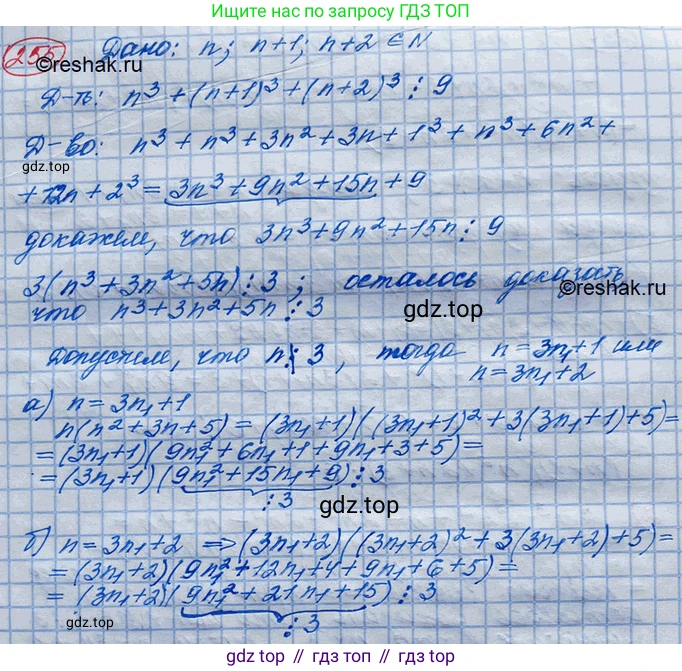 Ищите нас по запросу ГДЗ ТОП
255 Дано: n; n+1; n+2 ∈ N
©reshak.ru
Д-ть: n³ + (n+1)³ + (n+2)³ ⋮ 9
Д-во: n³ + n³ + 3n² + 3n + 1³ + n³ + 6n² +
gdz.top
+ 12n + 2³ = 3n³ + 9n² + 15n + 9
докажем, что 3n³ + 9n² + 15n ⋮ 9
3(n³ + 3n² + 5n) ⋮ 3; осталось доказать,
©reshak.ru
что n³ + 3n² + 5n ⋮ 3
gdz.top
Допустим, что n ⋮̸ 3, тогда n = 3n₁ + 1 или
n = 3n₁ + 2
а) n = 3n₁ + 1
n(n² + 3n + 5) = (3n₁ + 1)((3n₁ + 1)² + 3(3n₁ + 1) + 5) =
= (3n₁ + 1)(9n₁² + 6n₁ + 1 + 9n₁ + 3 + 5) =
= (3n₁ + 1)(9n₁² + 15n₁ + 9) ⋮ 3
⋮ 3
gdz.top
б) n = 3n₁ + 2 ⇒ (3n₁ + 2)((3n₁ + 2)² + 3(3n₁ + 2) + 5) =
= (3n₁ + 2)(9n₁² + 12n₁ + 4 + 9n₁ + 6 + 5) =
= (3n₁ + 2)(9n₁² + 21n₁ + 15) ⋮ 3
⋮ 3
gdz.top // гдз.топ // гдз.top